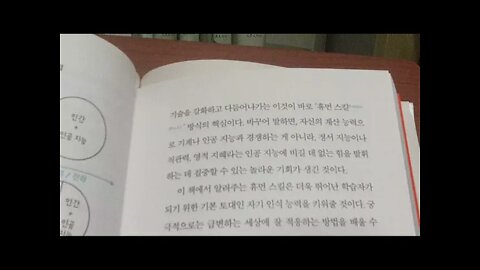 인간
+
인공 지능
인간
+
인공 지능
기술을 강화하고 다듬어나가는 이것이 바로 '휴먼 스킬
방식의 핵심이다. 바꾸어 말하면, 자신의 계산 능력으
로 기계나 인공 지능과 경쟁하는 게 아니라, 정서 지능이나
직관력, 영적 지혜라는 인공 지능에 비길 데 없는 힘을 발휘
하는 데 집중할 수 있는 놀라운 기회가 생긴 것이다.
이 책에서 알려주는 휴먼 스킬은 더욱 뛰어난 학습자가
되기 위한 기본 토대인 자기 인식 능력을 키워줄 것이다. 궁
극적으로는 급변하는 세상에 잘 적응하는 방법을 배울 수